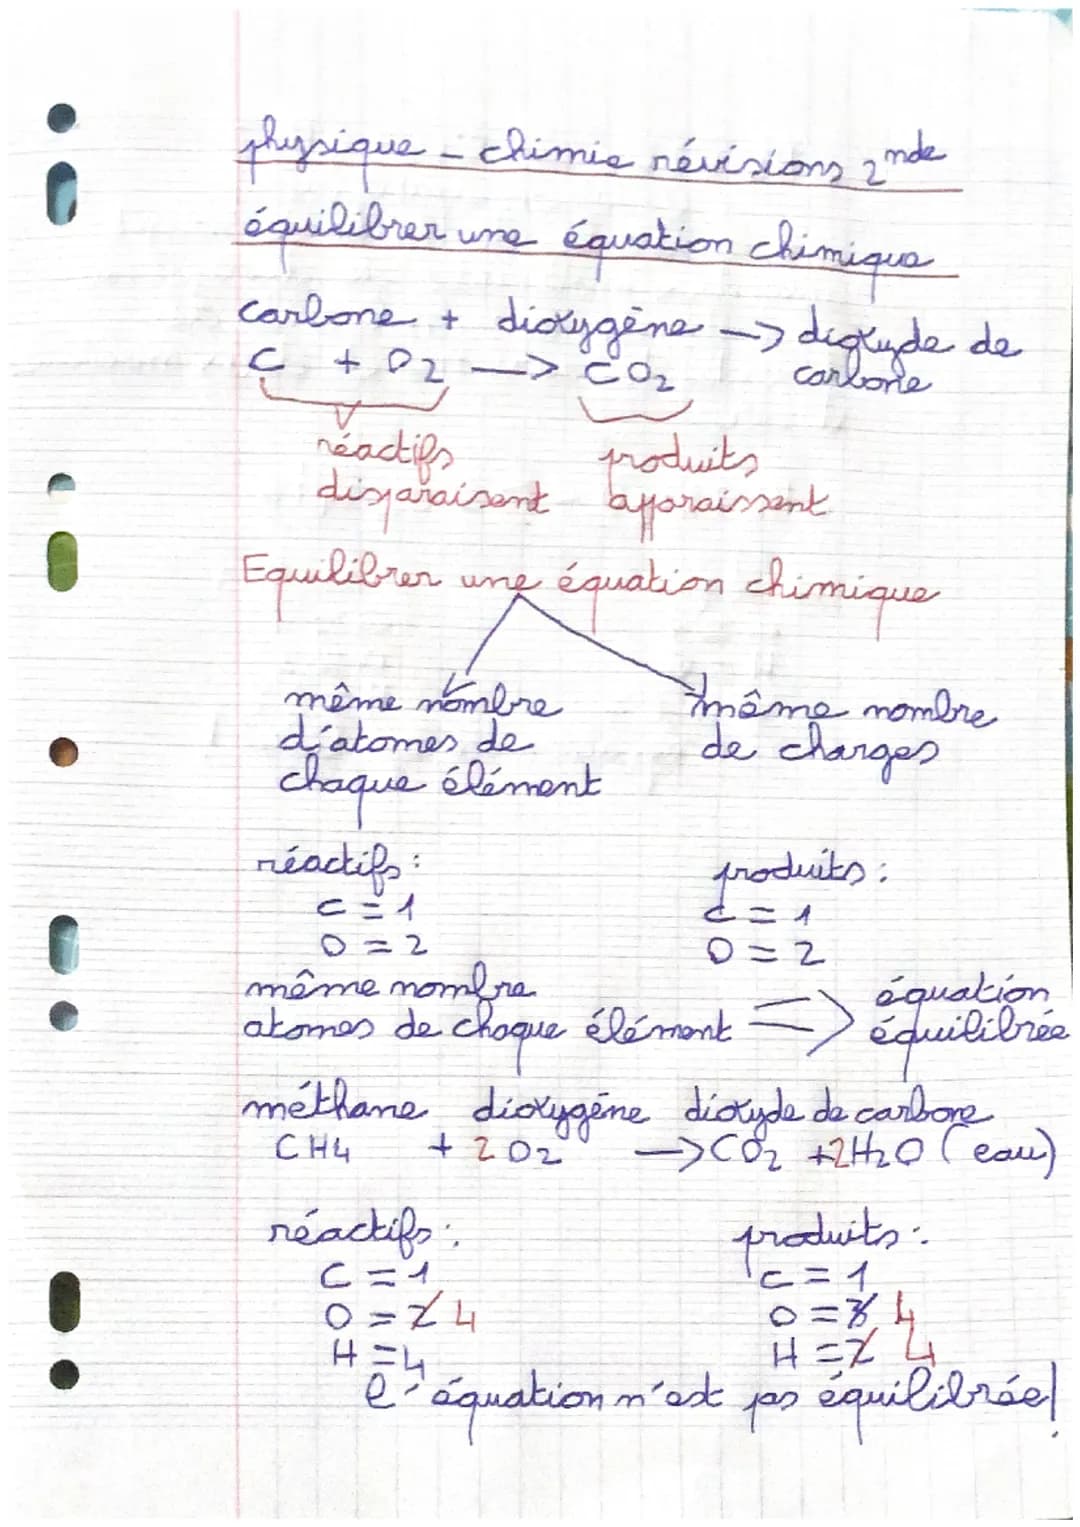 physique - chimie révisions 2nde
équilibrer une équation chimique
carbone + dioxygène -> dioxyde de carbone
C + O2 -> CO2
réactifs produits
disparaisent apparaissent
Equilibrer une équation chimique
même nombre d'atomes de chaque élément
même nombre de charges
réactifs : produits :
C = 1 C = 1
O = 2 O = 2
même nombre
atomes de chaque élément => équation équilibrée
méthane dioxygène dioxyde de carbone
CH4 + 2 O2 -> CO2 + 2H2O (eau)
réactifs : produits :
C = 1 C = 1
O = 2 4 O = 3 4
H = 4 H = 2 4
l'équation n'est pas équilibrée!